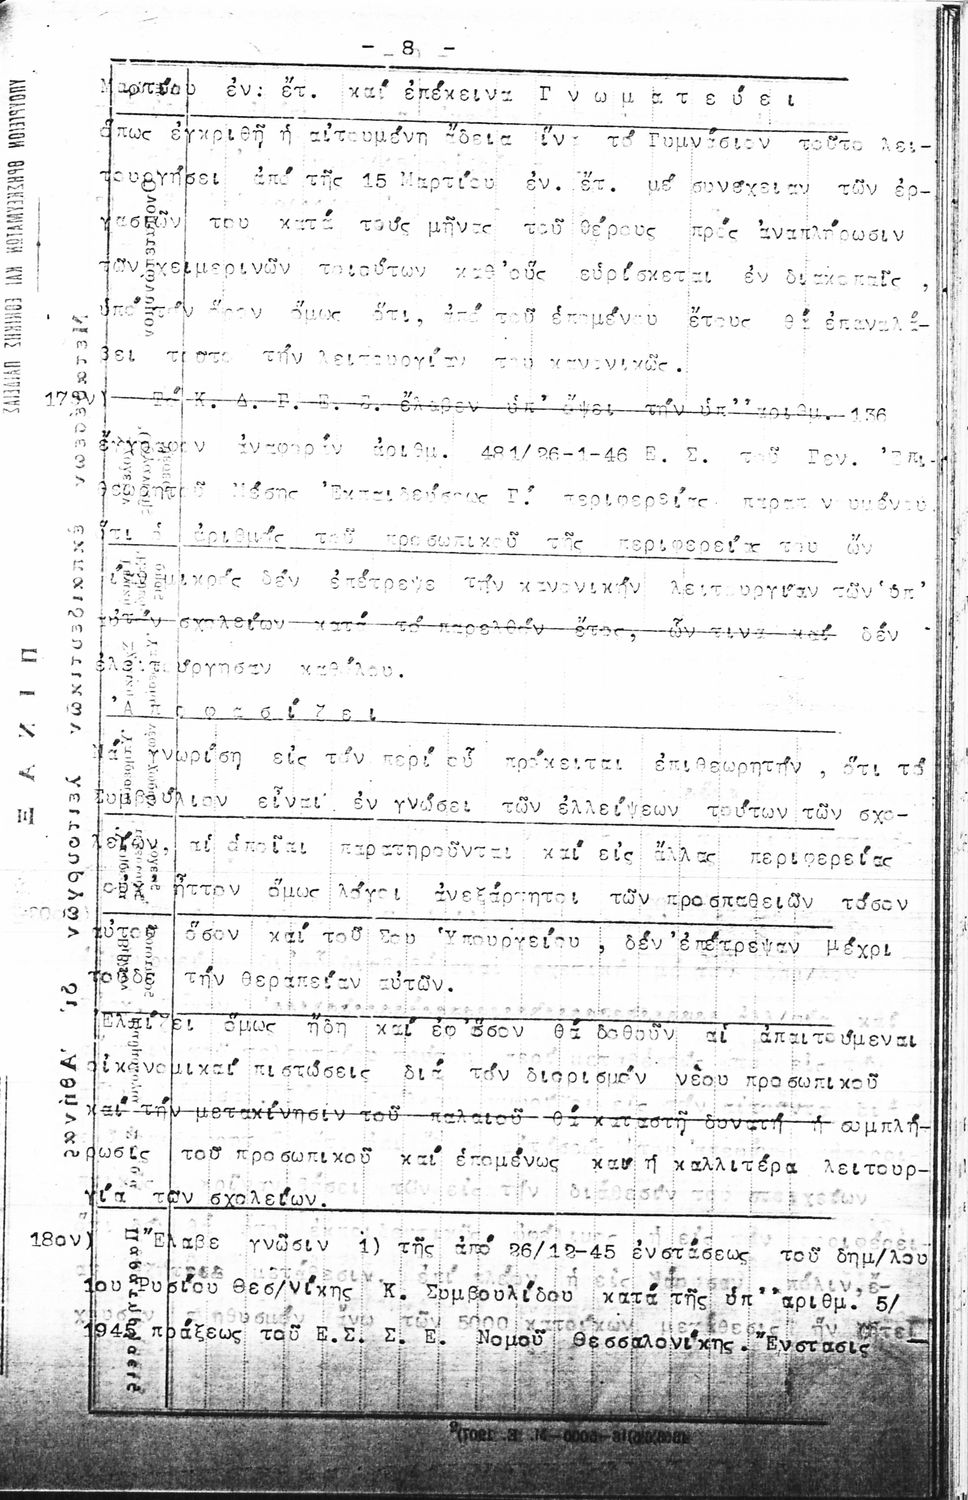 - 8 -
Μαρτίου ἐν. ἔτ. καί ἐπέκεινα Γ ν ω μ α τ ε ύ ε ι
ὅπως ἐγκριθῇ ἡ αἰτουμένη ἄδεια ἵνα τό Γυμνάσιον τοῦτο λει-
τουργήσει ἀπό τῆς 15 Μαρτίου ἐν. ἔτ. μέ συνέχειαν τῶν ἐρ-
γασιῶν του κατά τούς μῆνας τοῦ θέρους πρός ἀναπλήρωσιν
τῶν χειμερινῶν τοιούτων καθ'οὕς εὑρίσκεται ἐν διακοπαῖς ,
ὑπό τόν ὅρον ὅμως ὅτι, ἀπό τοῦ ἑπομένου ἔτους θά ἐπαναλά-
βει τοῦτο τήν λειτουργίαν του κανονικῶς.
17ον) Τό Κ. Δ. Γ. Ε. Σ. ἔλαβεν ὑπ' ὄψει τήν ὑπ''αριθμ. 136
ἔγγραφον ἀναφοράν ἀριθμ. 481/26-1-46 Ε. Σ. τοῦ Γεν. Ἐπι-
θεωρητοῦ Μέσης Ἐκπαιδεύσεως Γ! περιφερείας παραπονουμένου
ὅτι ὁ ἀριθμός τοῦ προσωπικοῦ τῆς περιφερείας του ὤν
μικρός δέν ἐπέτρεψε τήν κανονικήν λειτουργίαν τῶν ὑπ'
αὐτόν σχολείων κατά τό παρελθόν ἔτος, ὧν τινα καί δέν
ἐλειτούργησαν καθόλου.
Ἀ π ο φ α σ ί ζ ε ι
Νά γνωρίση εἰς τόν περί οὗ πρόκειται ἐπιθεωρητήν , ὅτι τό
Συμβούλιον εἶναι ἐν γνώσει τῶν ἐλλείψεων τούτων τῶν σχο-
λείων, αἱ ὁποῖαι παρατηροῦνται καί εἰς ἄλλας περιφερείας
οὐχ ἧττον ὅμως λόγοι ἀνεξάρτητοι τῶν προσπαθειῶν τόσον
αὐτοῦ ὅσον καί τοῦ Σου Ὑπουργείου , δέν ἐπέτρεψαν μέχρι
τοῦδε τήν θεραπείαν αὐτῶν.
Ἐλπίζει ὅμως ἤδη καί ἐφ'ὅσον θά δοθοῦν αἱ ἀπαιτούμεναι
οἰκονομικαί πιστώσεις διά τόν διορισμόν νέου προσωπικοῦ
καί τήν μετακίνησιν τοῦ παλαιοῦ θά καταστῆ δυνατή ἡ συμπλή-
ρωσις τοῦ προσωπικοῦ καί ἑπομένως και ἡ καλλιτέρα λειτουρ-
γία τῶν σχολείων.
18ον) Ἔλαβε γνῶσιν 1) τῆς ἀπό 26/12-45 ἐνστάσεως τοῦ δημ/λου
1ου Ρυσίου Θεσ/νίκης Κ. Συμβουλίδου κατά τῆς ὑπ''αριθμ. 5/
1945 πράξεως τοῦ Ε.Σ. Σ. Ε. Νομοῦ Θεσσαλονίκης. Ἔνστασις